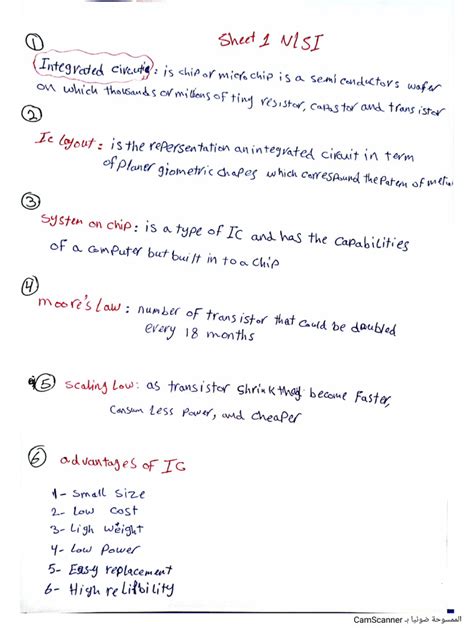 Sheet 1 VLSI
1
Integrated circuit: is chip or microchip is a semiconductors wafer
on which thousands or millions of tiny resistor, capastor and transistor
2
Ic layout: is the repersentation an integrated circuit in term
of planer giometric shapes which correspound the patern of metal
3
System on chip: is a type of IC and has the capabilities
of a computer but built in to a chip
4
moore's Law: number of transistor that could be doubled
every 18 months
5 scaling Low: as transistor shrink they become Faster,
Consum Less Power, and cheaper
6 advantages of IC
1- Small Size
2- Low Cost
3- Ligh Weight
4- Low Power
5- Easy replacement
6- High
الممسوحة ضوئيا بـ CamScanner